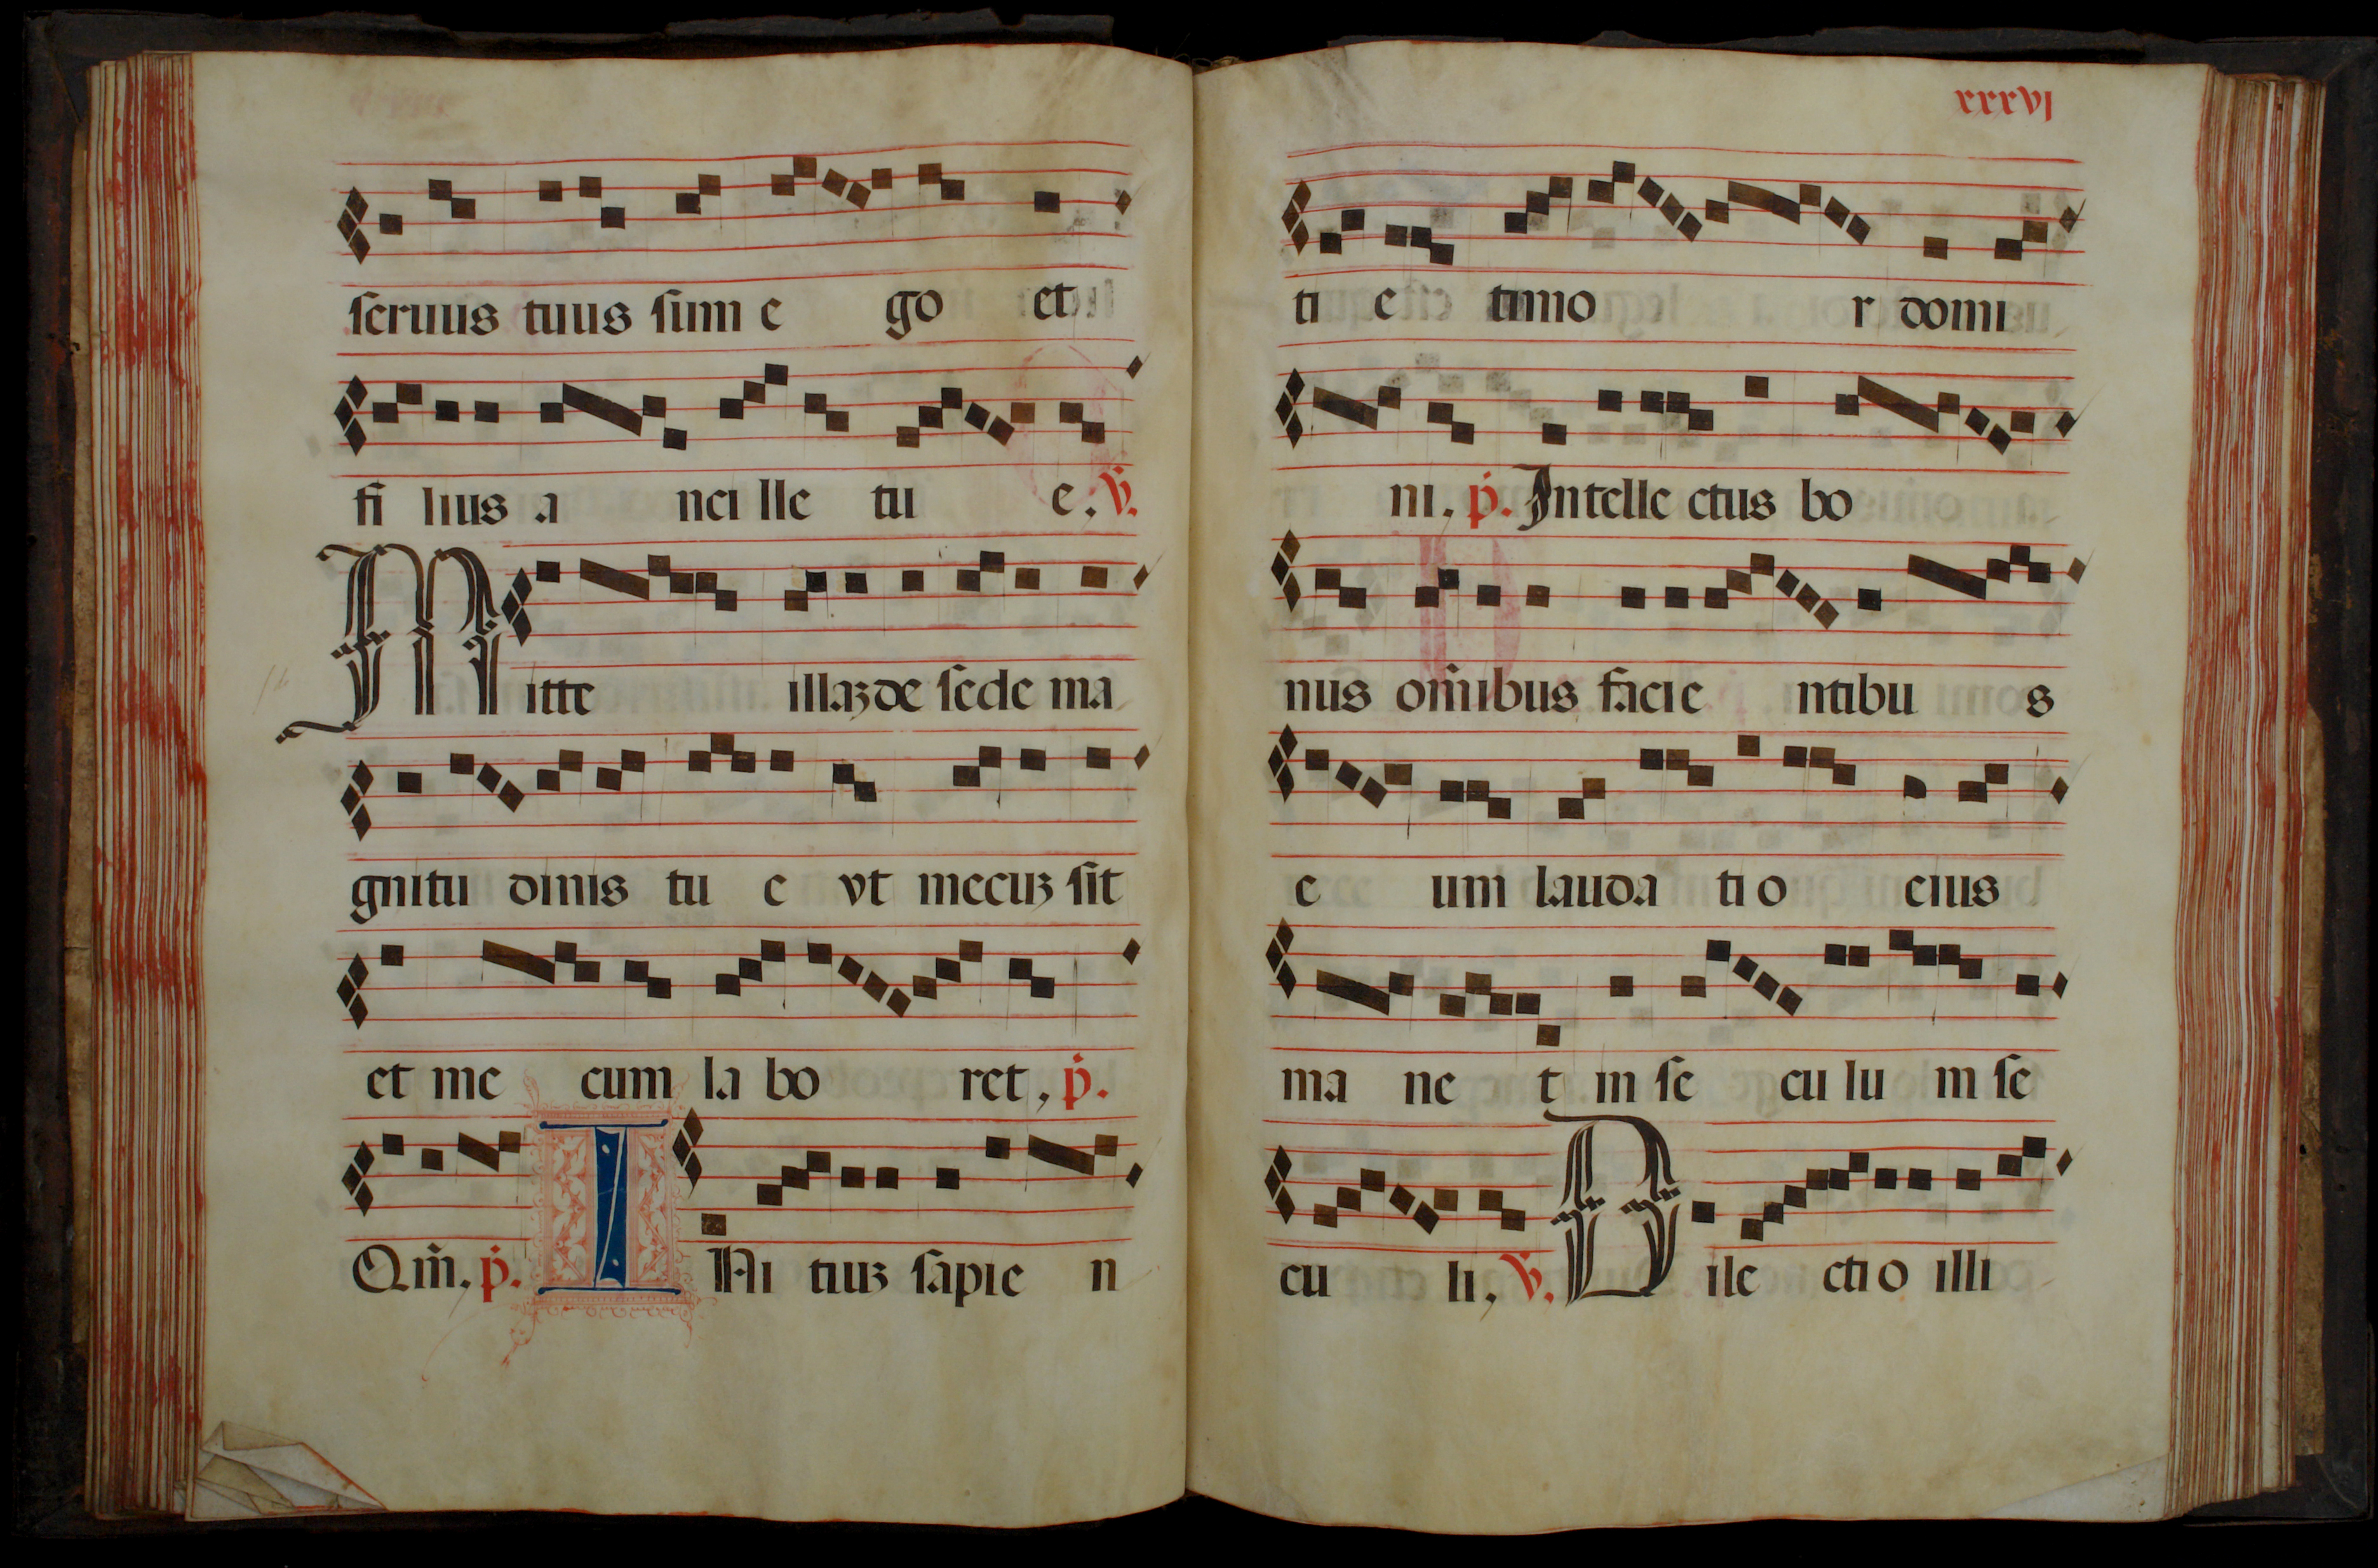 seruus tuus sum e go et
fi lius a nci lle tu e. v.
Mitte illaʒ de sede ma
gnitu dinis tu e vt mecuʒ sit
et me cum la bo ret, p.
Qm̃. p. INi tiuʒ sapie n
xxxvj
ti e timo r domi
ni. p. Intelle ctus bo
nus om̃ibus facie ntibu s
e um lauda ti o eius
ma ne t in se cu lu m se
cu li, v. Dile cti o illi